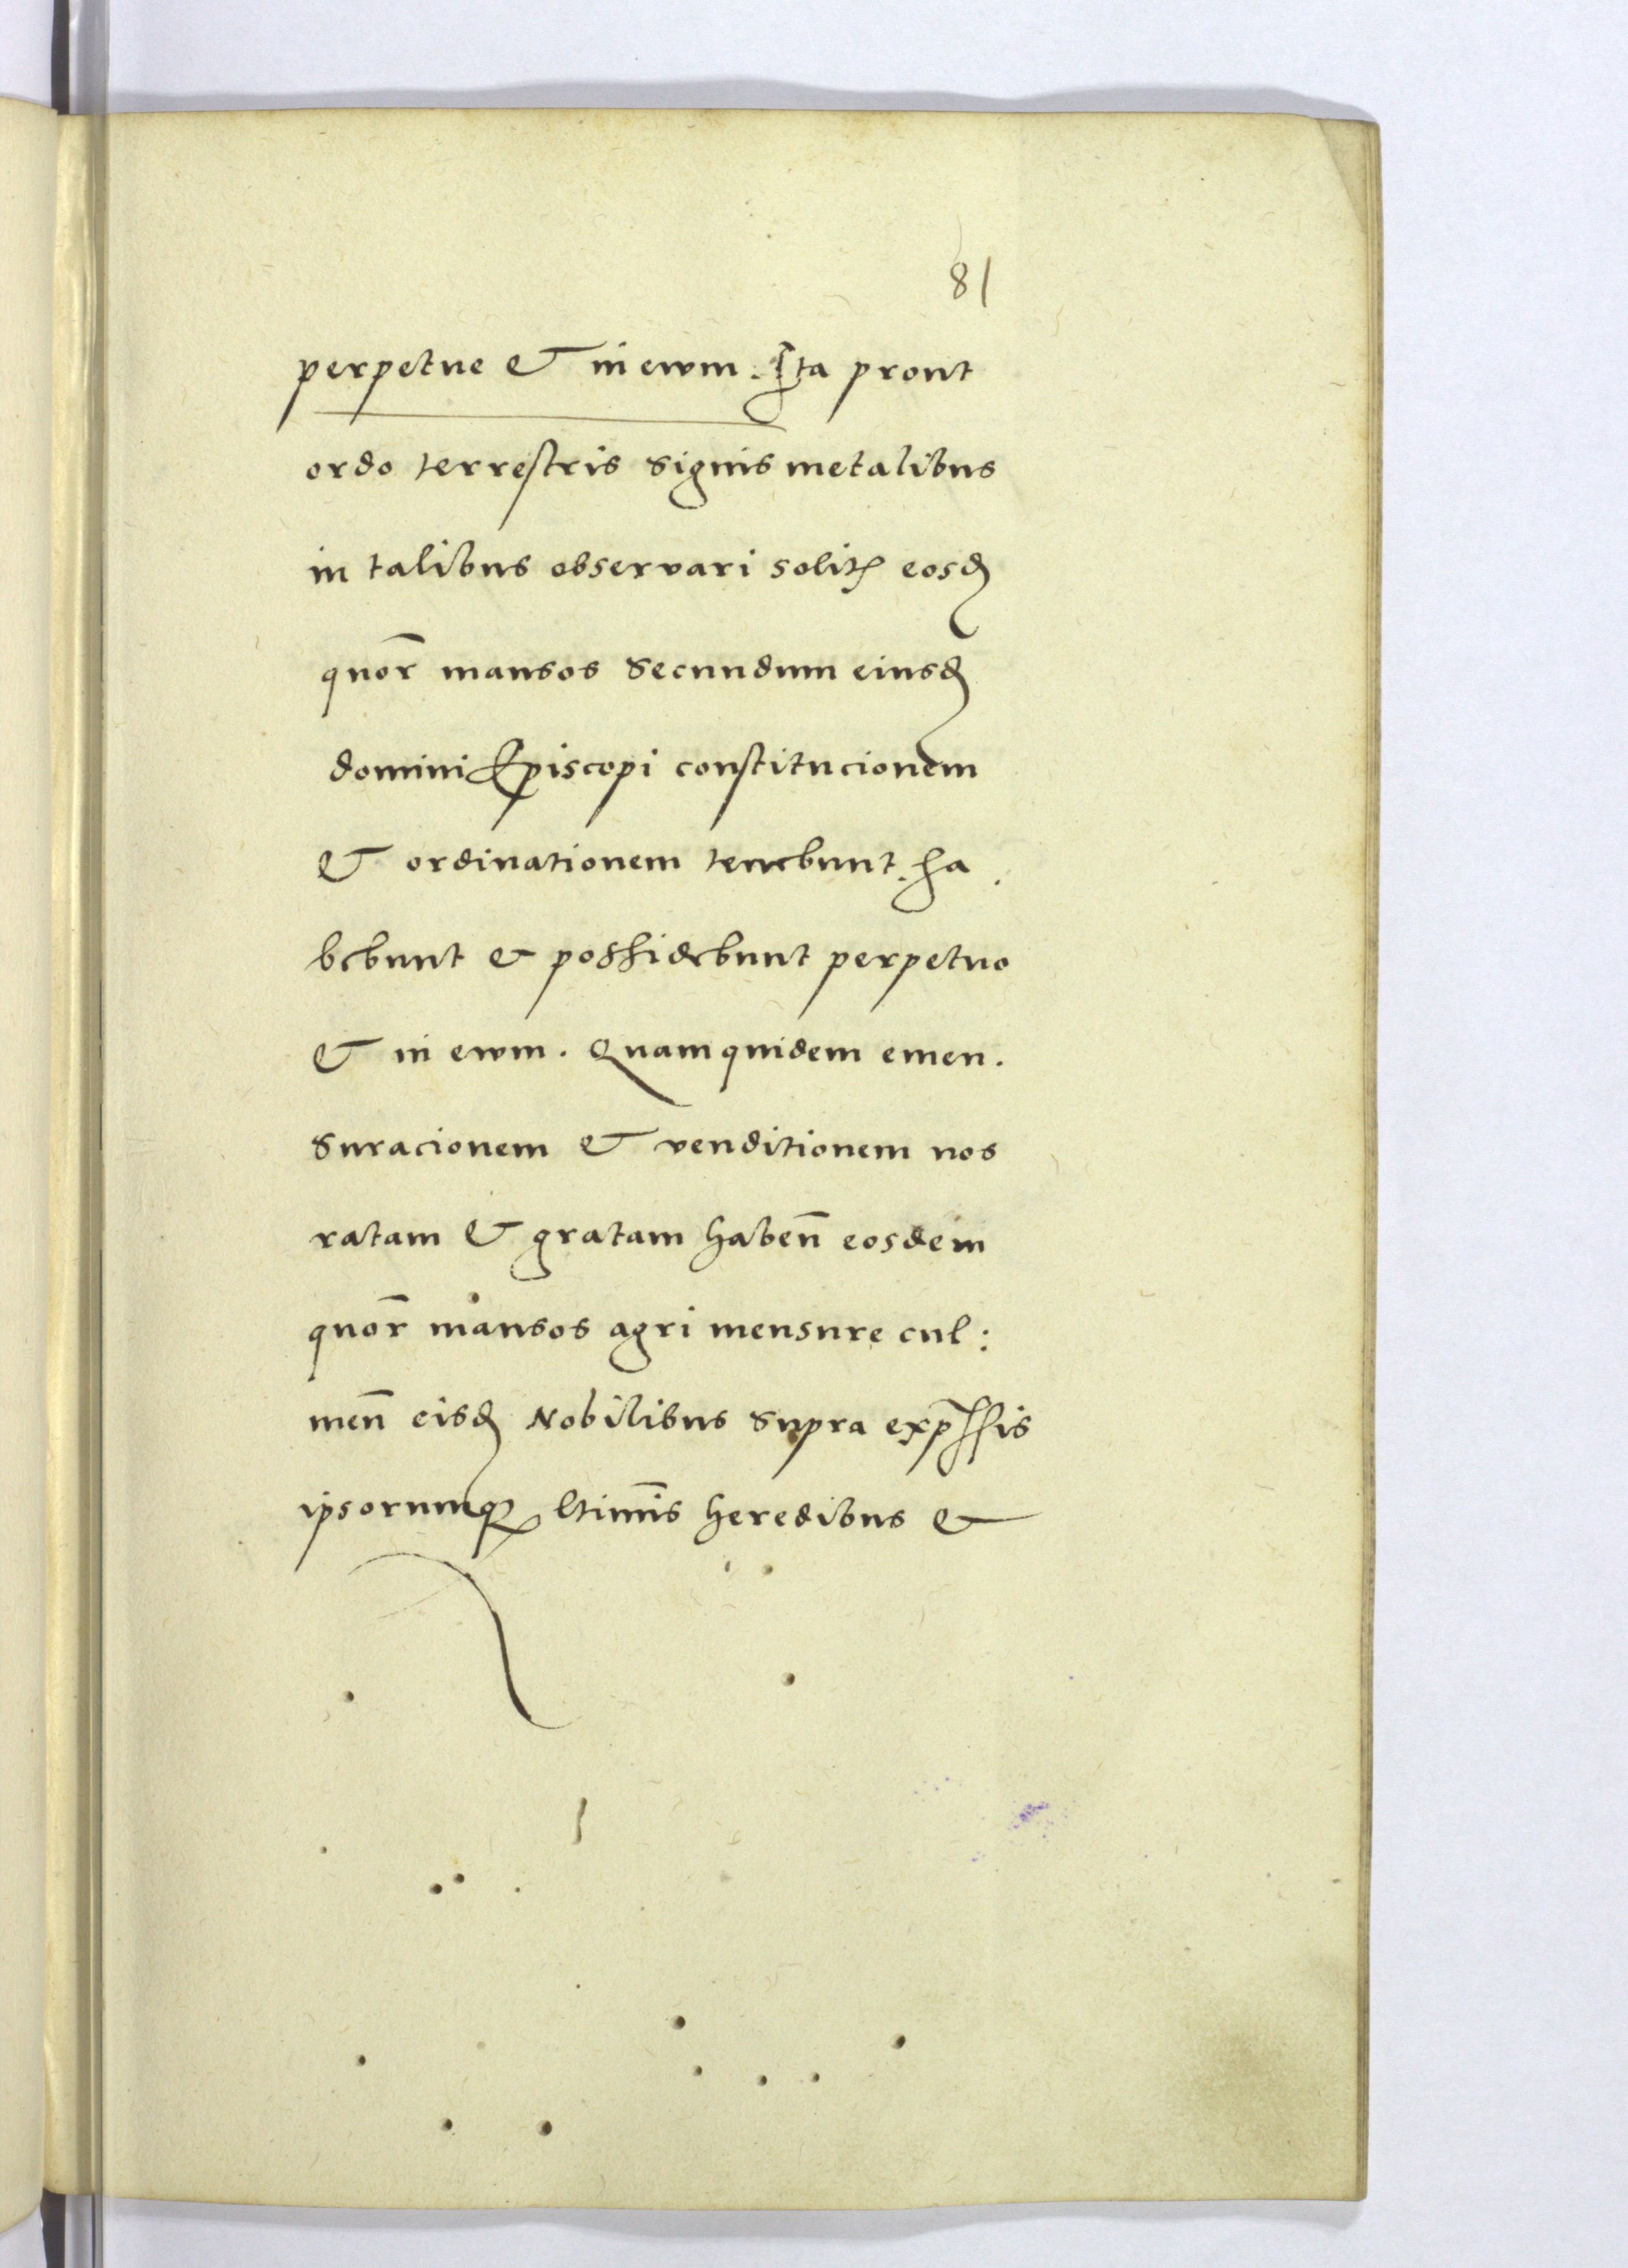 81
perpetue & in ewm. Ita prout
ordo terrestris signis metalibus
in talibus observari solitꝭ eosdꝫ
quor̄ mansos secundum eiusdꝫ
domini Episcopi constitucionem
& ordinationem tenebunt. ha.
bebunt & possidebunt perpetuo
& in ewm. Quam quidem emen.
suracionem & venditionem nos
ratam & gratam haben̄ eosdem
quor̄ mansos agri mensure cul:
men̄ eisdꝫ Nobilibus supra exp̄ssis
ipsorumqꝫ ltimis̄ heredibus &